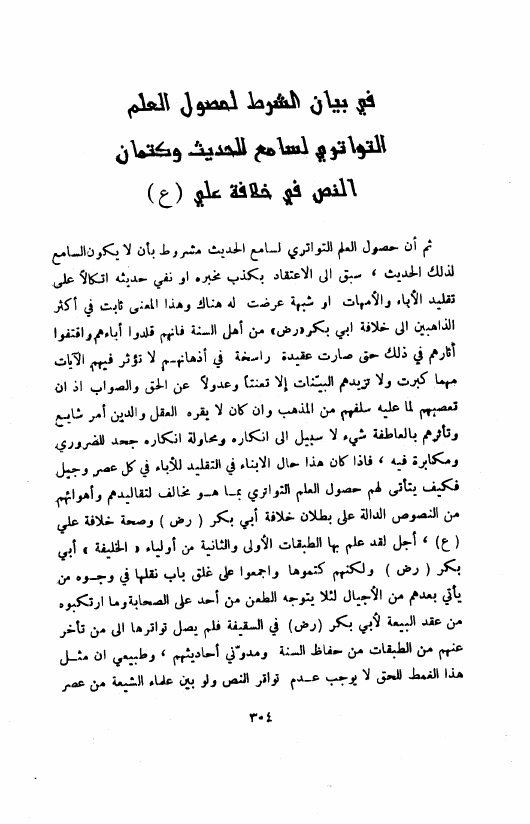 في بيان الشرط لحصول العلم
التواتري لسامع الحديث وكتمان
النص في خلافة علي (ع)
ثم أن حصول العلم التواتري لسامع الحديث مشروط بأن لا يكون السامع
لذلك الحديث ، سبق الى الاعتقاد بكذب مخبره او نفي حديثه اتكالاً على
تقليد الأباء والأمهات او شبهة عرضت له هناك وهذا المعنى ثابت في أكثر
الذاهبين الى خلافة ابي بكر «رض» من أهل السنة فانهم قلدوا أباءهم واقتفوا
أثارهم في ذلك حتى صارت عقيدة راسخة في أذهانهم لا تؤثر فيهم الآيات
مهما كبرت ولا تزيدهم البيّنات إلا تعنتاً وعدولاً عن الحق والصواب اذ ان
تعصبهم لما عليه سلفهم من المذهب وان كان لا يقره العقل والدين أمر شايع
وتأثرهم بالعاطفة شيء لا سبيل الى انكاره ومحاولة انكاره جحد للضروري
ومكابرة فيه ، فاذا كان هذا حال الابناء في التقليد للأباء في كل عصر وجيل
فكيف يتأتى لهم حصول العلم التواتري بما هو مخالف لتقاليدهم وأهوائهم
من النصوص الدالة على بطلان خلافة أبي بكر (رض) وصحة خلافة علي
(ع) ، أجل لقد علم بها الطبقات الأولى والثانية من أولياء « الخليفة » أبي
بكر (رض) ولكنهم كتموها واجمعوا على غلق باب نقلها في وجوه من
يأتي بعدهم من الأجيال لئلا يتوجه الطعن من أحد على الصحابة وما ارتكبوه
من عقد البيعة لأبي بكر (رض) في السقيفة فلم يصل تواترها الى من تأخر
عنهم من الطبقات من حفاظ السنة ومدوّني أحاديثهم ، وطبيعي ان مثل
هذا الغمط للحق لا يوجب عدم تواتر النص ولو بين علماء الشيعة من عصر
٣٠٤